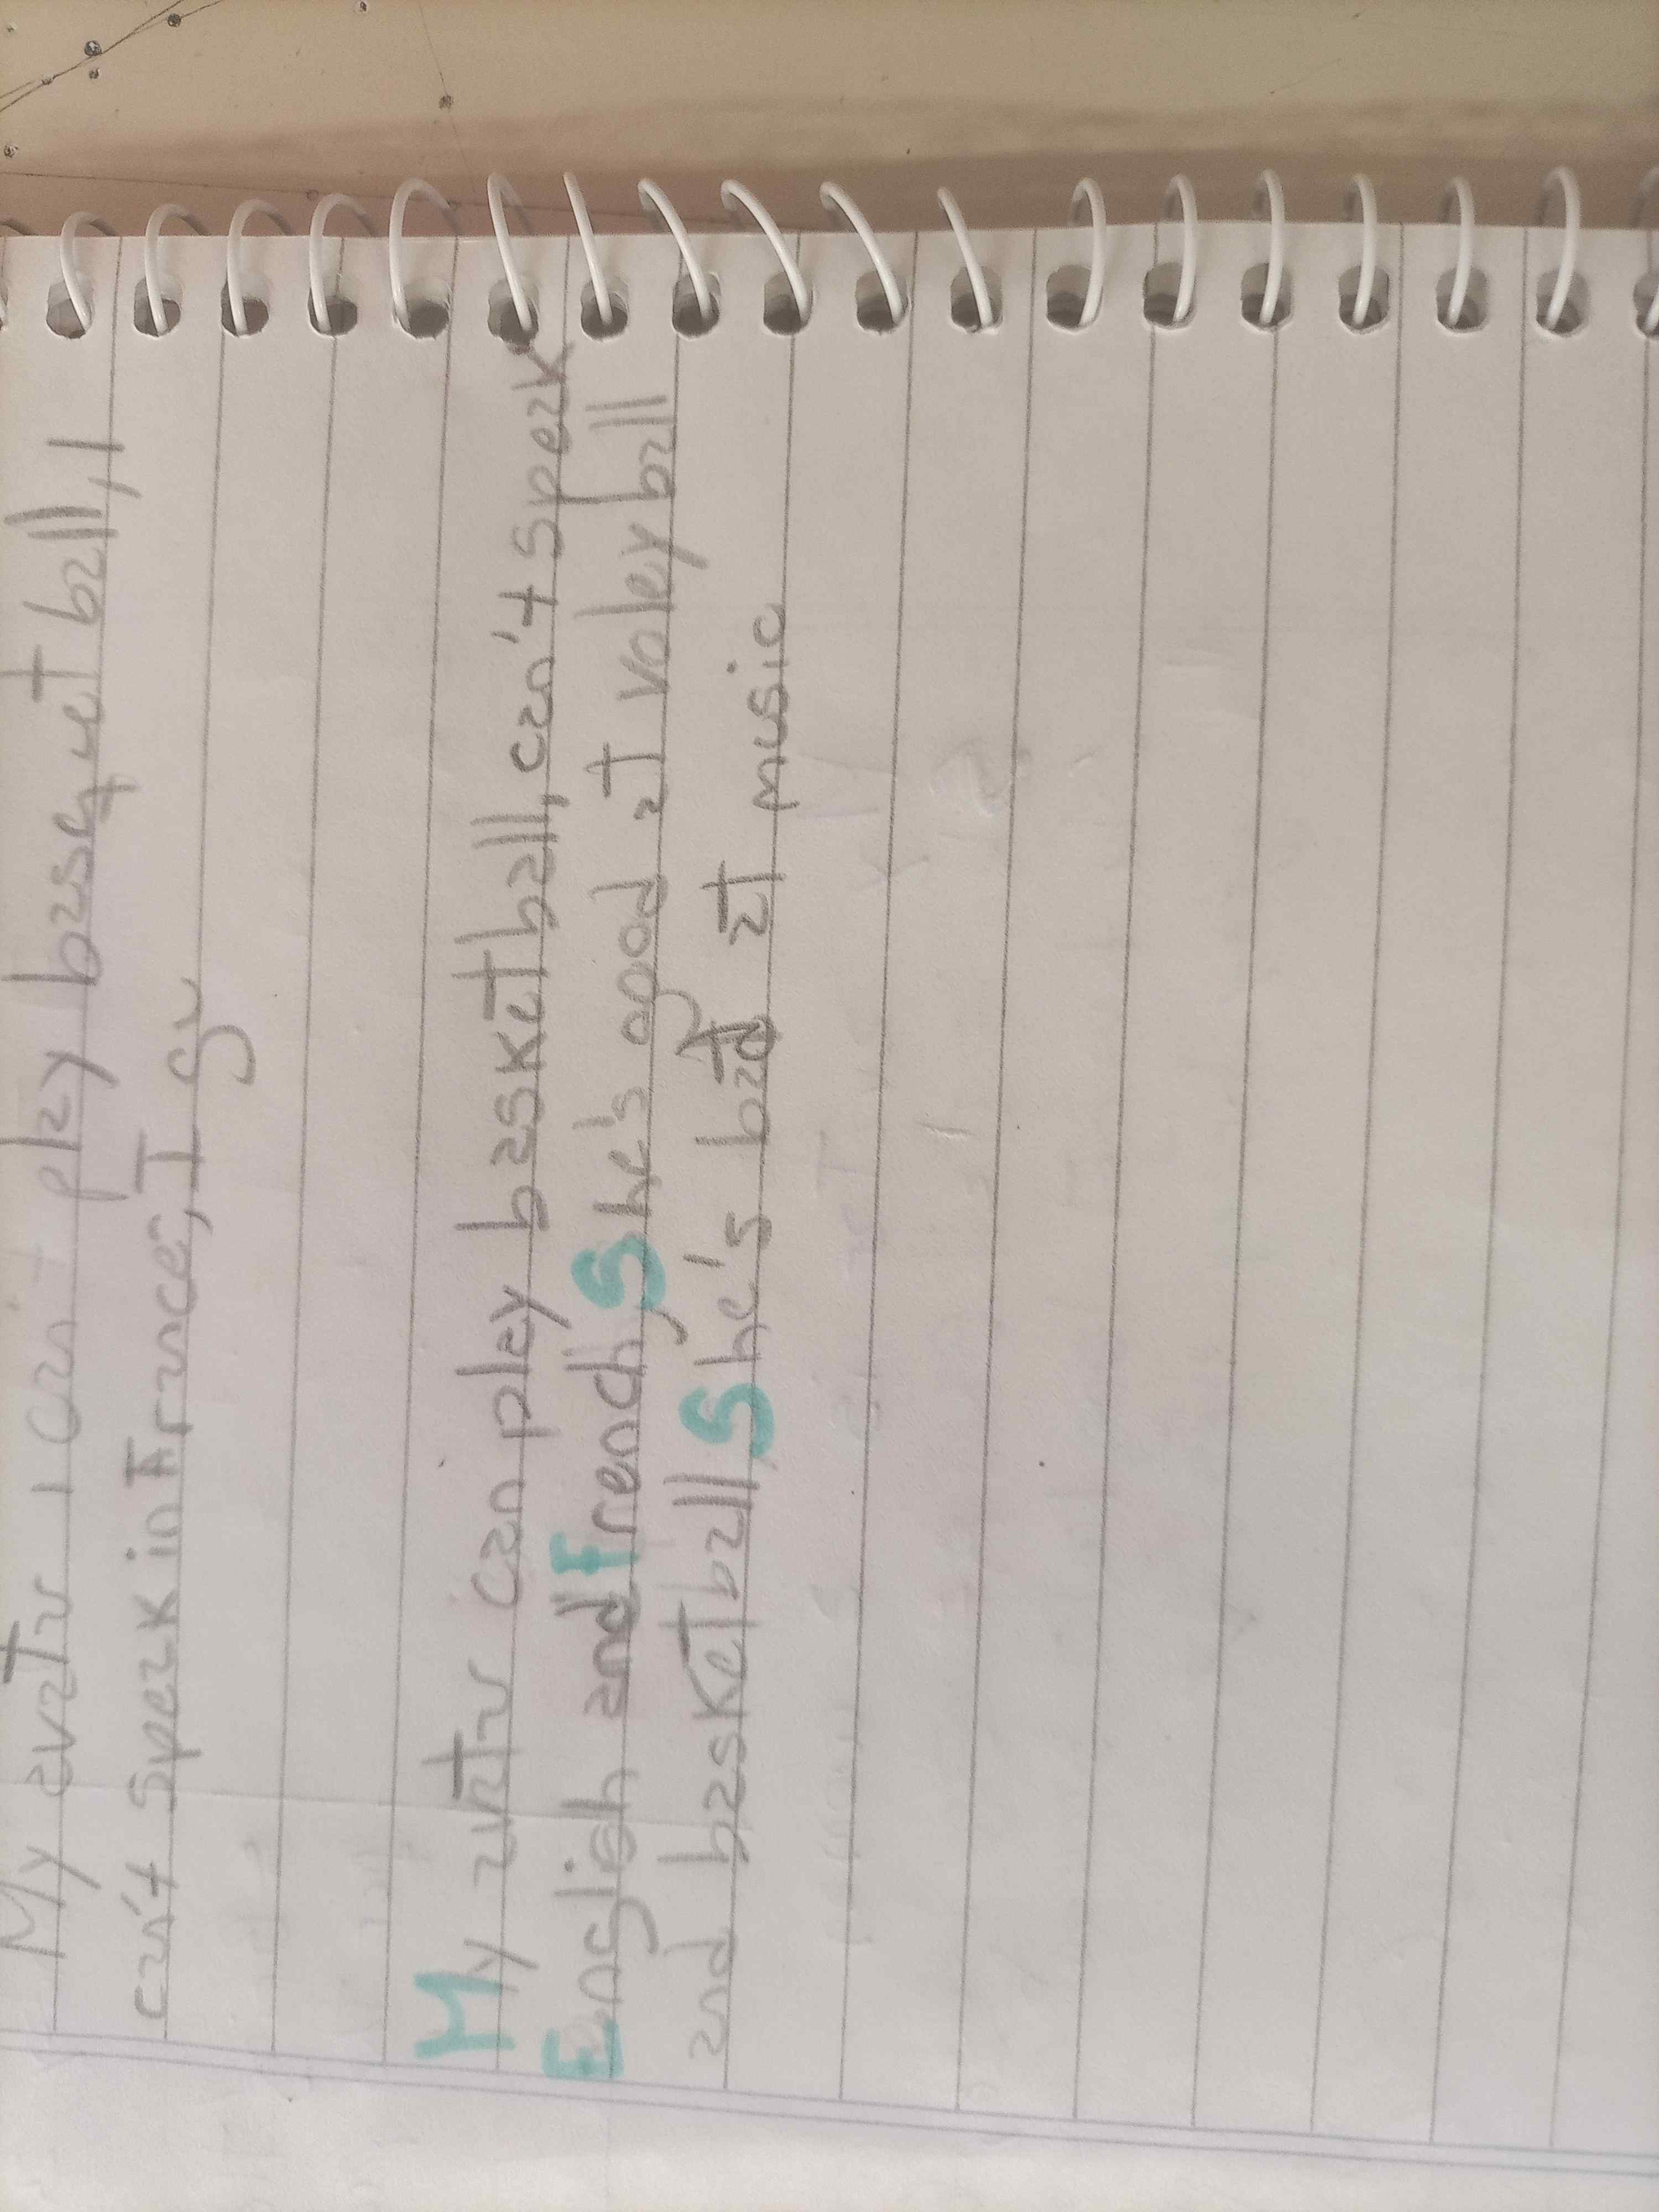 My avatr I can't play bassquet ball, I
can't speak in France, I
My avatr can play basket ball, can't speak
English and French, She's good at voley ball
and basket ball She's bad at music